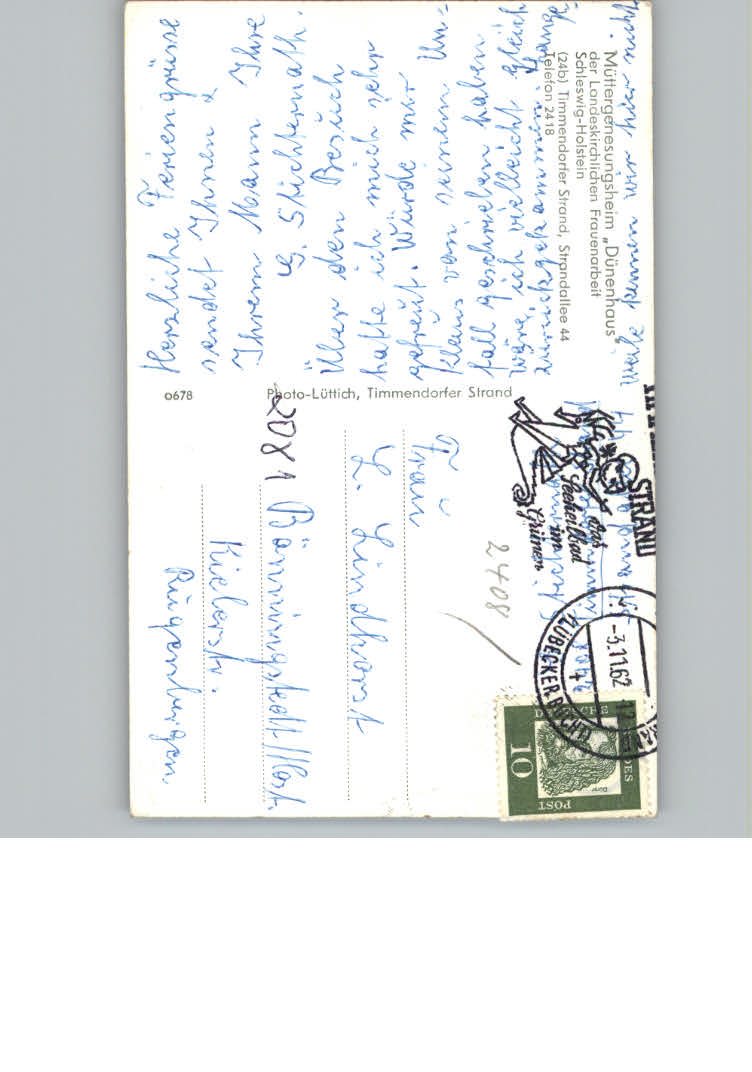 Müttergenesungsheim „Dünenhaus"
der Landeskirchlichen Frauenarbeit
Schleswig-Holstein
(24b) Timmendorfer Strand, Strandallee 44
Telefon 2418
Herzliche Feriengrüsse
sendet Ihnen &
Ihrem Mann Ihre
G. Stichternath.
Über den Besuch
hatte ich mich sehr
gefreut. Würde mir
Klaus von seinem Un=
fall geschrieben haben
wäre ich vielleicht gleich
zurückgekommen. Lange
weile kennen wir hier nicht.
o678
Photo-Lüttich, Timmendorfer Strand
STRAND
das
Seeheilbad
im
Grünen
-3.11.62
LÜBECKER BUCHT
DEUTSCHE
BUNDES
POST
10
Dürer
2408
Frau
L. Lindhorst
2081 Bönningstedt/Holst.
Kielerstr.
Rugenbergen